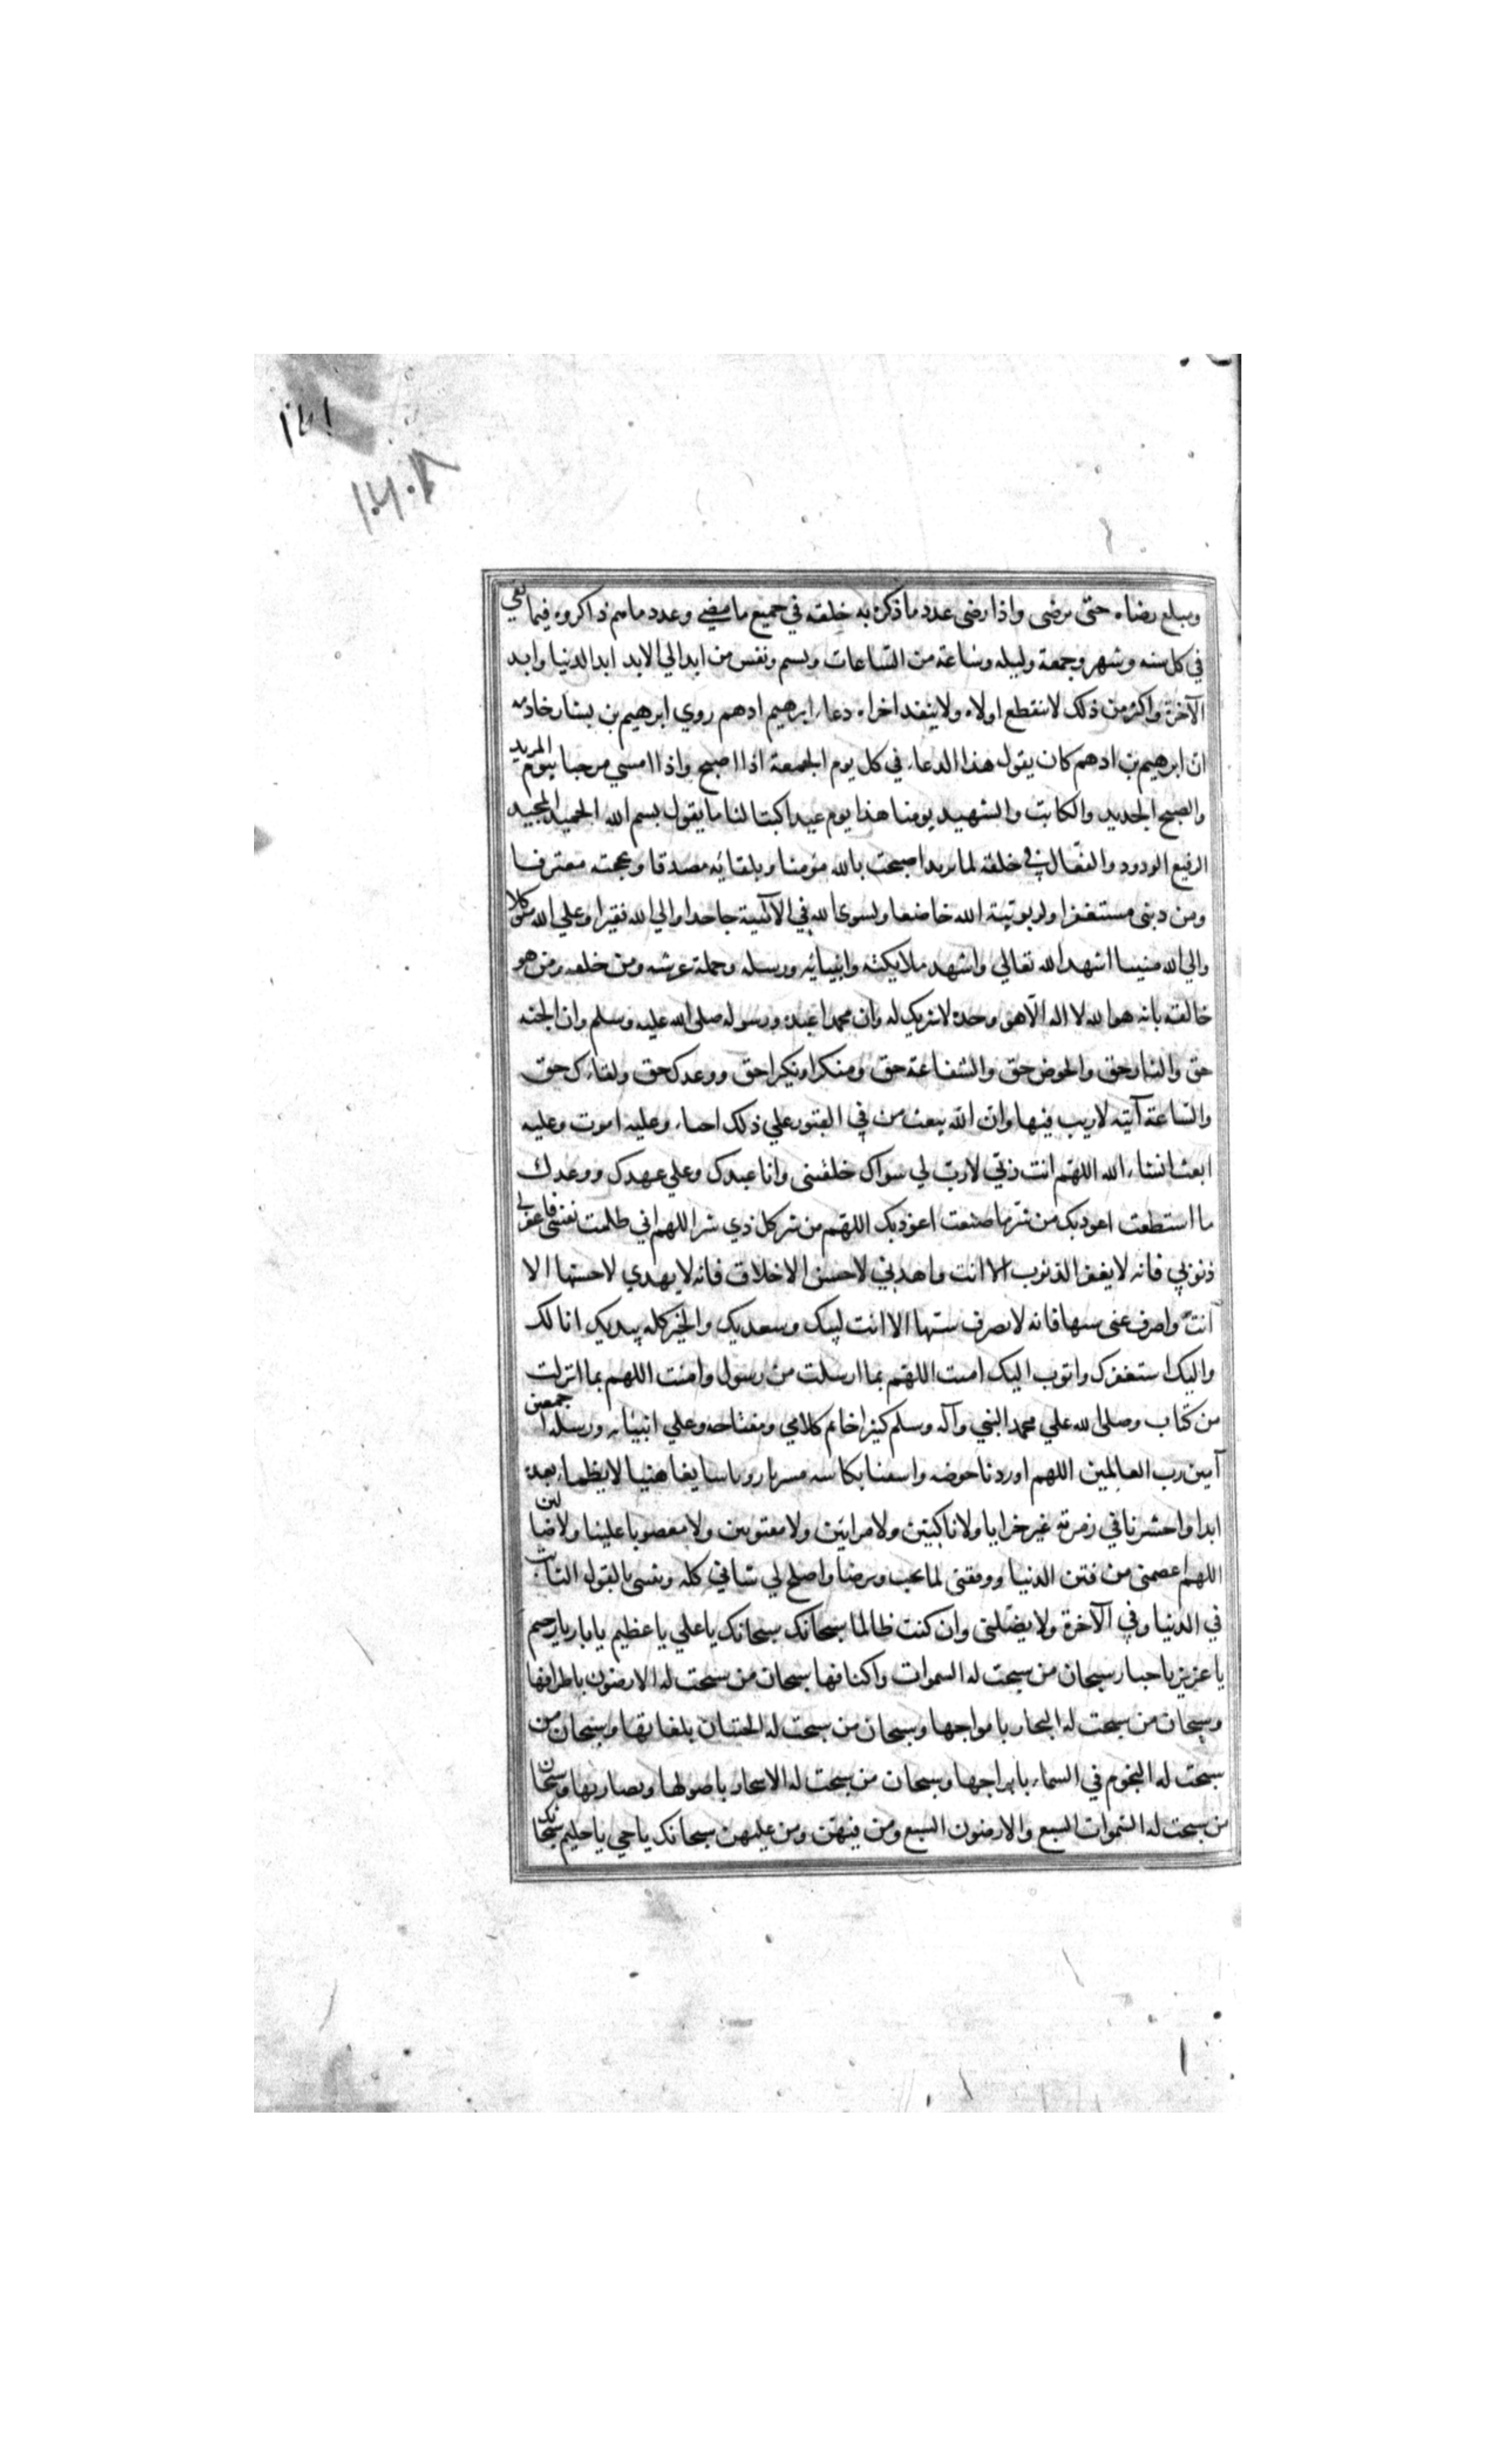 ومبلع رضاه حتى يرضى واذا رضى عدد ما ذكره به خلقه في جميع ما مضى وعدد ما هم ذاكروه فيما بقي
في كل سنه وشهر وجمعة وليله وساعة من الساعات ونسم ونفس من ابد الي الابد ابد الدنيا وابد
الآخرة واكثر من ذلك لا ينقطع اولاه ولا ينفد اخراه دعاء ابرهيم ادهم روي ابرهيم بن بشار خادمه
ان ابرهيم بن ادهم كان يقول هذا الدعاء في كل يوم الجمعة اذا اصبح واذا امسي مرحبا بيوم المريد
والصبح الجديد والكاتب والشهيد يومنا هذا يوم عيد اكتب لنا ما يقول بسم الله الحميد المجيد
الرفيع الودود والفعال في خلقه لما يريد اصبحت بالله مؤمنا وبلقائه مصدقا وبحجته معترفا
ومن دبنى مستغفرا ولربوتية الله خاضعا ولسوى الله في الآلهية جاحدا والي الله فقيرا وعلي الله متوكلا
والي الله منيبا اشهد الله تعالي واشهد ملايكته وانبيائه ورسله وحملة عرشه ومن خلقه ومن هو
خالقه بانه هو الله لا اله الا هو وحده لا شريك له وان محمدا عبده ورسوله صلى الله عليه وسلم وان الجنه
حق والنار حق والحوض حق والشفاعة حق ومنكرا ونكيرا حق ووعدك حق ولقاءك حق
والساعة آتيه لا ريب فيها وان الله يبعث من في القبور علي ذلك احيا وعليه اموت وعليه
ابعث انشاء الله اللهم انت ربي لا رب لي سواك خلقتنى وانا عبدك وعلي عهدك ووعدك
ما استطعت اعوذ بك من شر ما صنعت اعوذ بك اللهم من شر كل ذي شر اللهم اني ظلمت نفسى فاغفر لي
ذنوبي فانه لا يغفر الذنوب الا انت واهدني لاحسن الاخلاق فانه لا يهدي لاحسنها الا
انت واصرف عنى سيها فانه لا يصرف سيها الا انت لبيك وسعديك والخير كله بيديك انا لك
واليك استغفرك واتوب اليك امنت اللهم بما ارسلت من رسول وامنت اللهم بما انزلت
من كتاب وصلى الله علي محمد النبي وآله وسلم كثيرا خاتم كلامي ومفتاحه وعلي انبيائه ورسله اجمعين
آمين رب العالمين اللهم اوردنا حوضه واسقنا بكاسه مشربا رويا سايغا هنيا لا يظماء بعده
ابدا واحشرنا في زمرته غير خزايا ولا ناكبين ولا مرابين ولا مفتونين ولا مغضوبا علينا ولا ضالين
اللهم اعصمنى من فتن الدنيا ووفقنى لما تحب وترضا واصلح لي شاني كله وثبتنى بالقول الثابت
في الدنيا وفي الآخرة ولا تضلنى وان كنت ظالما سبحانك سبحانك يا علي يا عظيم يا بار يا رحيم
يا عزيز يا جبار سبحان من سبحت له السموات واكنافها سبحان من سبحت له الارضون باطرافها
وسبحان من سبحت له البحار بامواجها وسبحان من سبحت له الحيتان بلغاتها وسبحان من
سبحت له النجوم في السماء بابراجها وسبحان من سبحت له الاشجار باصولها ونضارتها وسبحان
من سبحت له السموات السبع والارضون السبع ومن فيهن ومن عليهن سبحانك يا حي يا حليم سبحانك